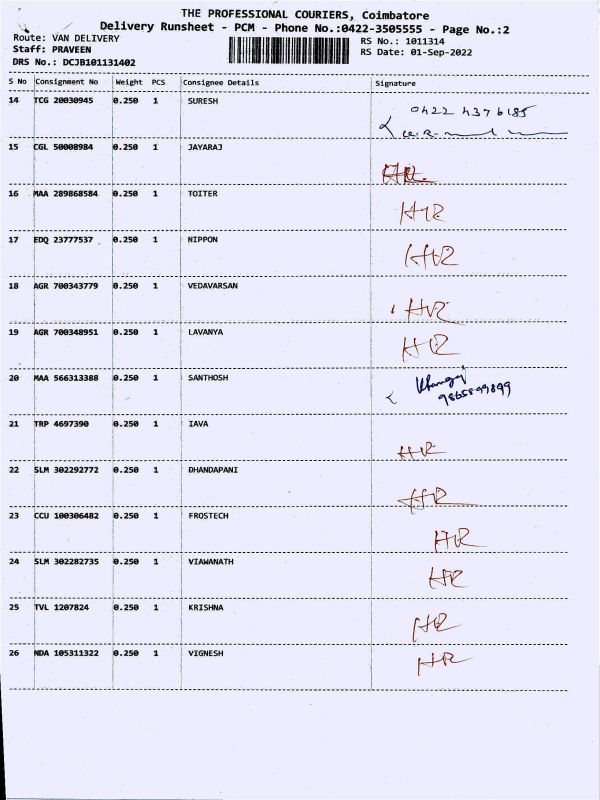 THE PROFESSIONAL COURIERS, Coimbatore
Delivery Runsheet - PCM - Phone No.:0422-3505555 - Page No.:2
Route: VAN DELIVERY
RS No.: 1011314
Staff: PRAVEEN
RS Date: 01-Sep-2022
DRS No.: DCJB101131402
S No Consignment No Weight PCS Consignee Details Signature
14 TCG 20030945 0.250 1 SURESH
0422 4376185
15 CGL 50008984 0.250 1 JAYARAJ
HR
16 MAA 289868584 0.250 1 TOITER
HR
17 EDQ 23777537 0.250 1 NIPPON
HR
18 AGR 700343779 0.250 1 VEDAVARSAN
HR
19 AGR 700348951 0.250 1 LAVANYA
HR
20 MAA 566313388 0.250 1 SANTHOSH
9865899899
21 TRP 4697390 0.250 1 IAVA
HR
22 SLM 302292772 0.250 1 DHANDAPANI
HR
23 CCU 100306482 0.250 1 FROSTECH
HR
24 SLM 302282735 0.250 1 VIAWANATH
HR
25 TVL 1207824 0.250 1 KRISHNA
HR
26 NDA 105311322 0.250 1 VIGNESH
HR